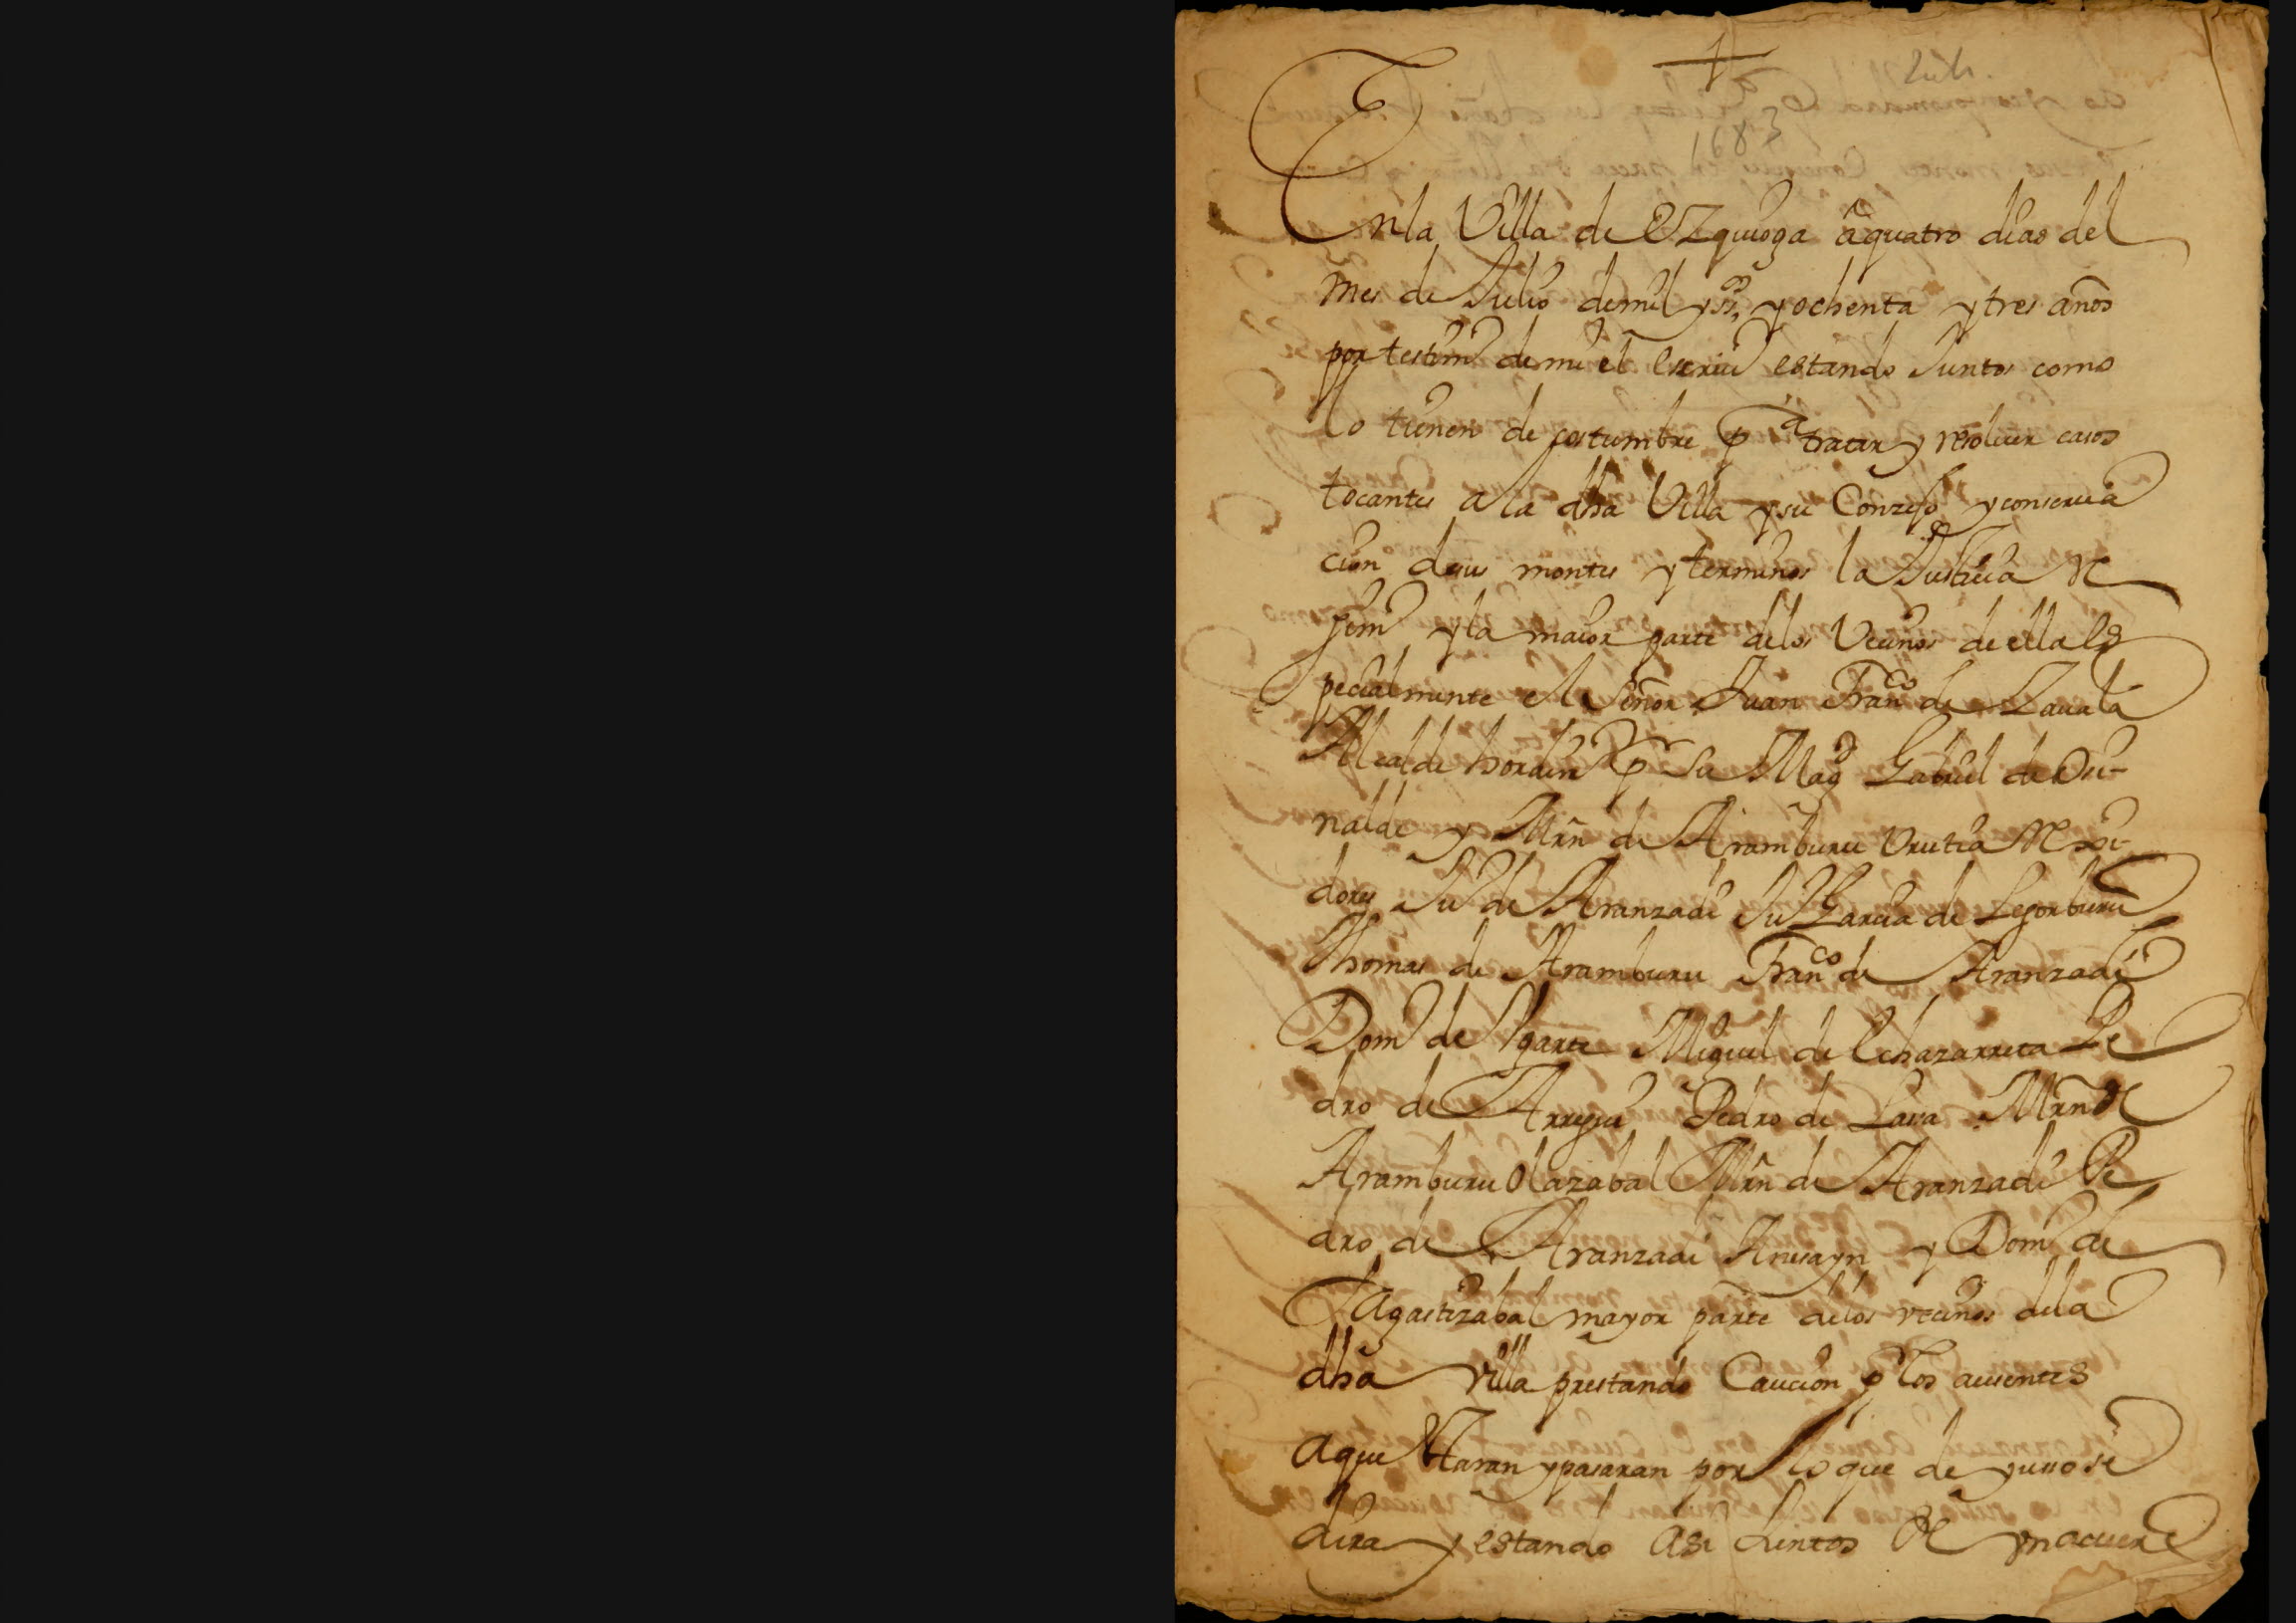 1683
En la Villa de Ezquioga â quatro dias del
mes de Julio de mil y ssos y ochenta y tres años
por testimo de mi el escriuo estando Juntos como
lo tienen de costumbre pa tratar y resoluer casos
tocantes a la dha Villa y su Conzejo y conserua
cion de sus montes y terminos la Justicia Re
jimo y la maior parte de los Vecinos de ella es
pecialmente el Señor Juan Franco de Zauala
Alcalde hordino p Su Magd Gabriel de
nalde y Mrn de Aramburu Vrutia Rexi-
dores Ju de Aranzadi Ju Garcia de Legorburu
Thomas de Aramburu Franco de Aranzadi
Domo de Ygarte Miguel de Echazarreta Pe
dro de Arregui Pedro de Lasa Mrn de
Aramburu Olazabal Mrn de Aranzadi Pe
dro de Aranzadi y Domo de
Sagastizabal mayor parte de los vecinos de la
dha villa prestando Caucion p los ausentes
a que Staran y pasaran por lo que de yusso se
dira y estando asi Juntos de vn acuer